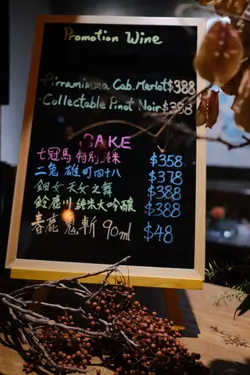 Promotion Wine
Pirramimma Cab. Merlot $388
-Collectable Pinot Noir $398
SAKE
七冠馬 特別純米 $358
二兔 雄町四十八 $378
鈿女 天女之舞 $388
鈴鹿川 純米大吟釀 $388
春鹿 鬼斬 90ml $48